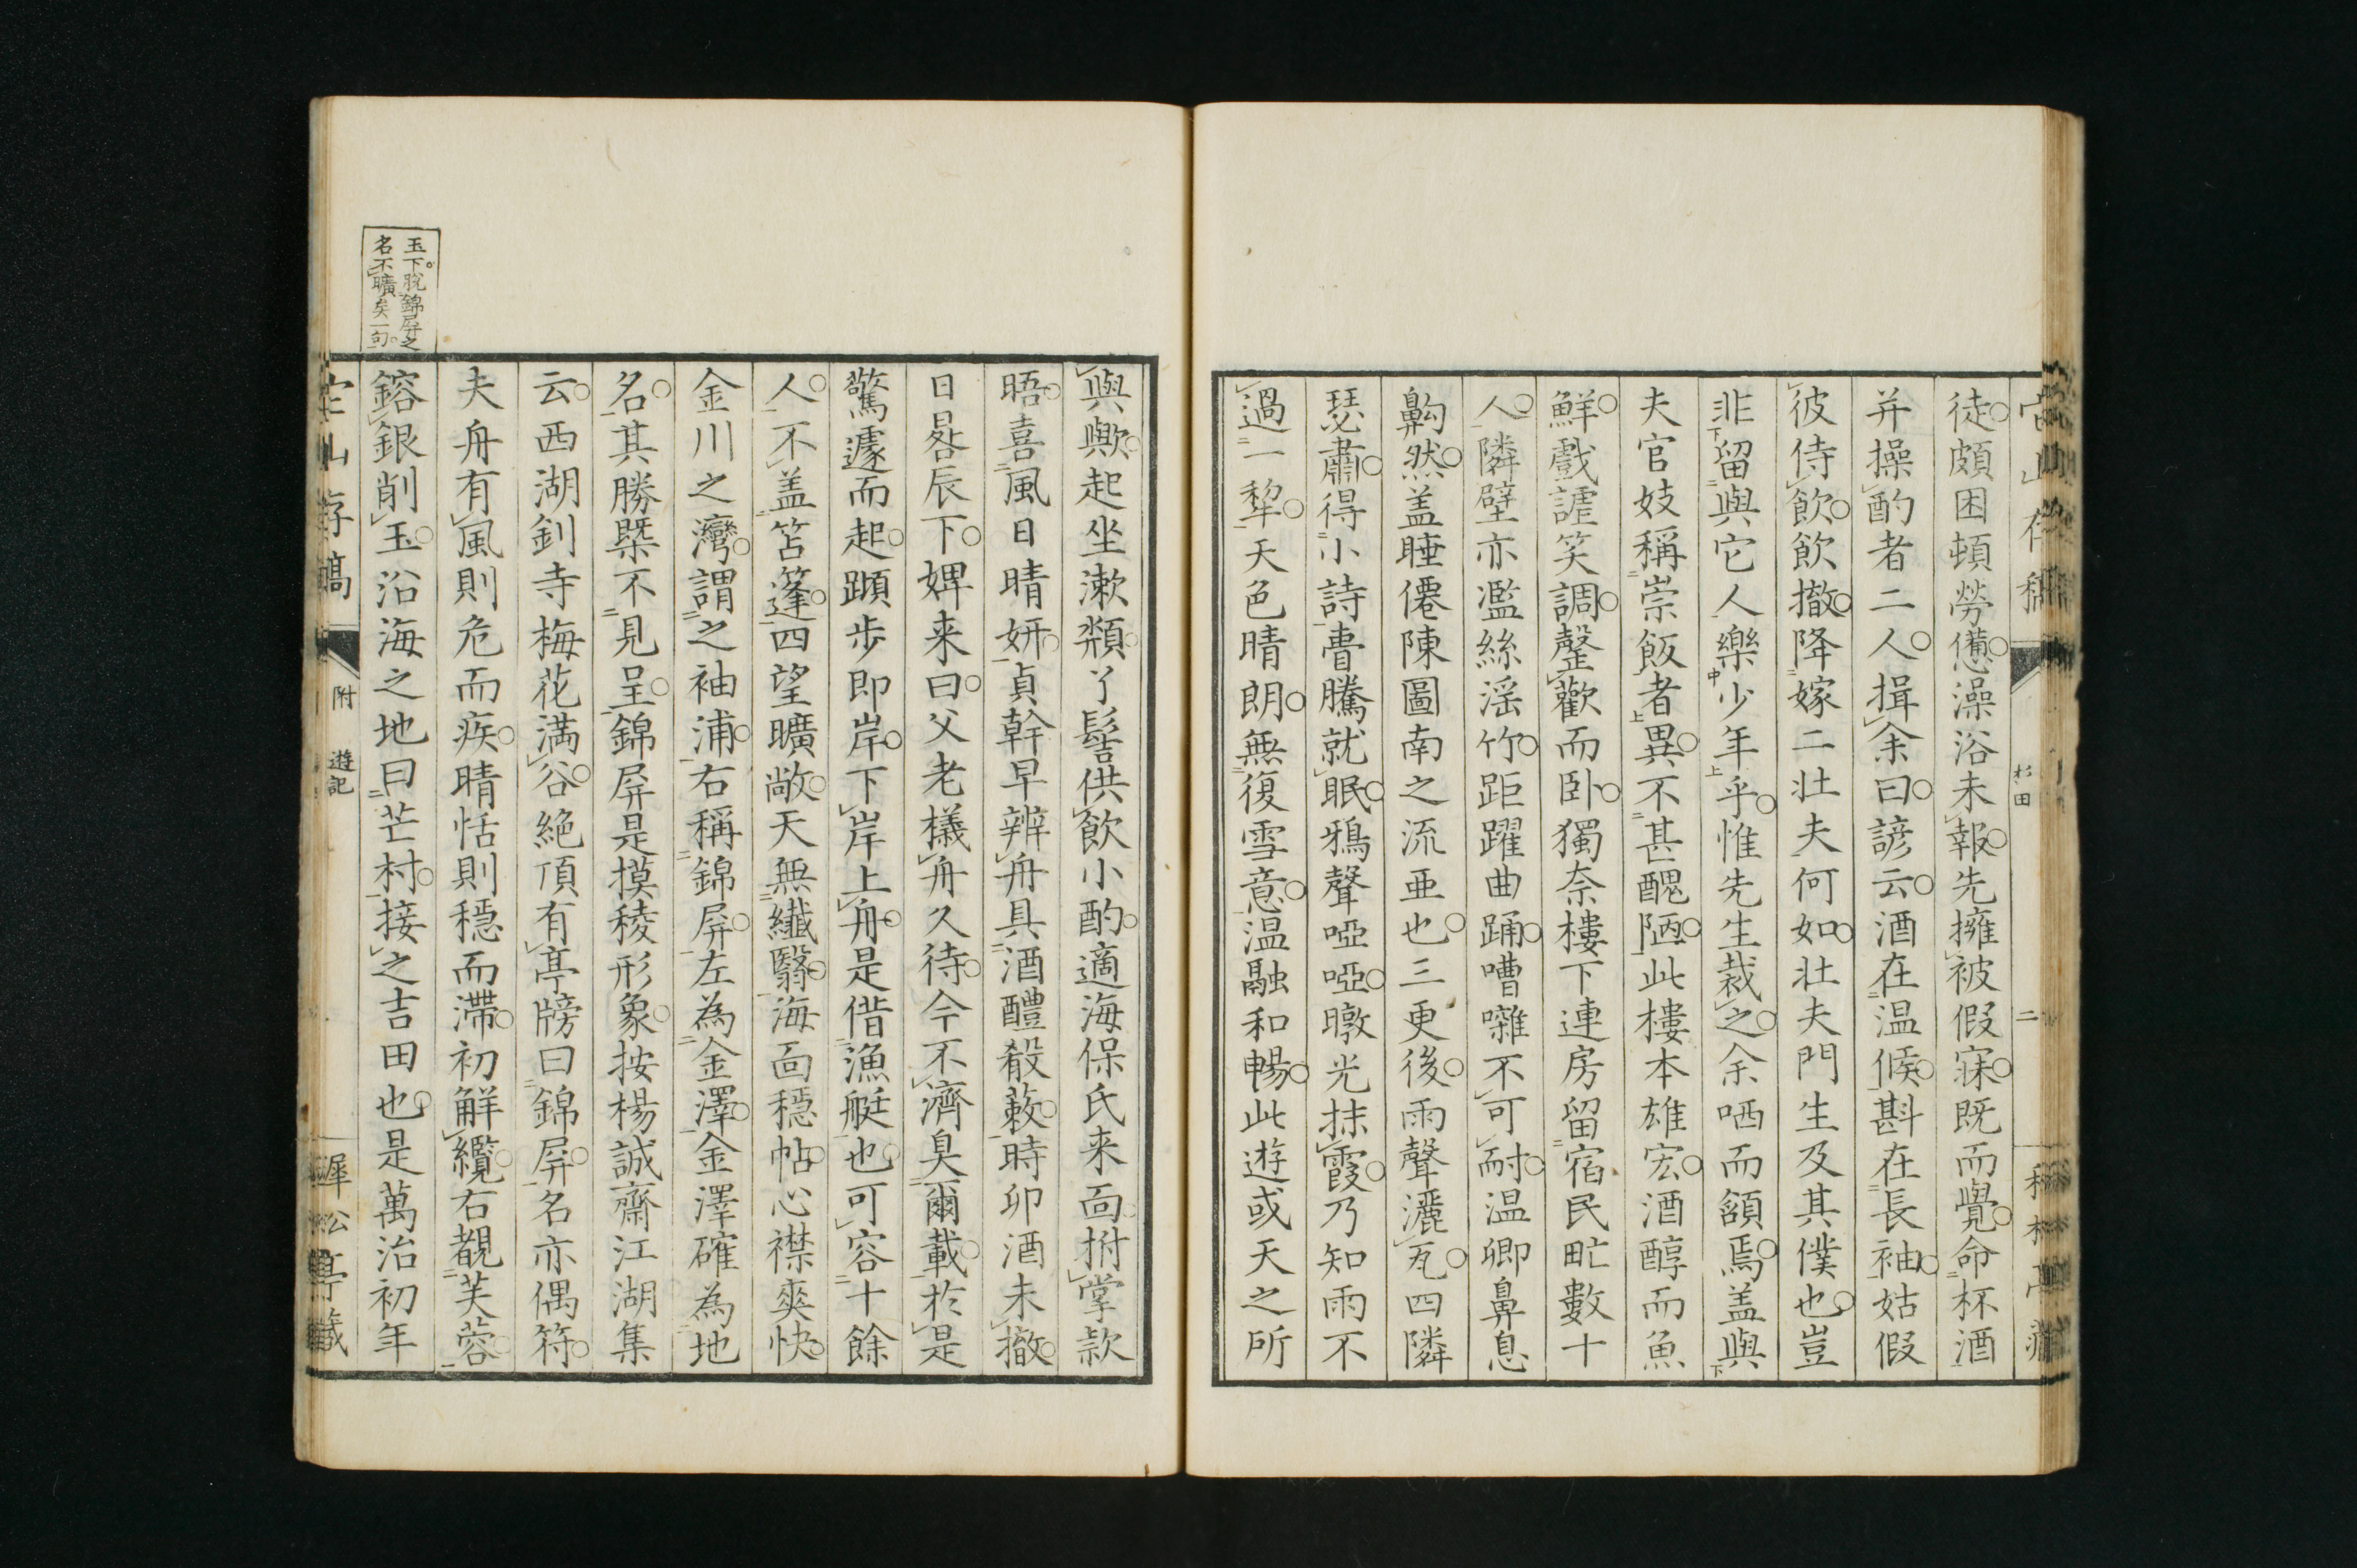 徒頗困頓勞憊澡浴未報先擁被假寐既而覺命杯酒
并操酌者二人揖余曰諺云酒在温候斟在長袖姑假
彼侍飲飲撤降嫁二壮夫何如壮夫門生及其僕也豈
非留與它人樂少年乎惟先生裁之余哂而額焉盖與
夫官妓稱崇飯者異不甚醜陋此樓本雄宏酒醇而魚
鮮戲謔笑調罄歡而卧獨奈樓下連房留宿民甿數十
人隣壁亦濫絲滛竹距躍曲踊嘈囃不可耐温卿鼻息
齁然盖睡僊陳圖南之流亜也三更後雨聲灑瓦四隣
瑟肅得小詩瞢騰就眠鴉聲啞啞暾光抹霞乃知雨不
過一犂天色晴朗無復雪意温融和暢此遊或天之所
與歟起坐漱頮丫髻供飲小酌適海保氏来面拊掌款
晤喜風日晴妍貞幹早辨舟具酒醴殽蔌時卯酒未撤
日晷辰下婢来曰父老檥舟久待今不濟臭爾載於是
驚遽而起蹞歩即岸下岸上舟是偕漁艇也可容十餘
人不盖笘篷四望曠敞天無纖翳海面穏帖心襟爽快
金川之灣謂之袖浦右稱錦屏左為金澤金澤確為地
名其勝槩不見呈錦屏是摸稜形象按楊誠齋江湖集
云西湖釗寺梅花満谷絶頂有亭牓曰錦屏名亦偶符
夫舟有風則危而疾晴恬則穏而滯初觧纜右覩芙蓉
鎔銀削玉沿海之地曰芒村接之吉田也是萬治初年
玉下脱錦屏之
名不曠矣一句
杉田
二
附
遊記